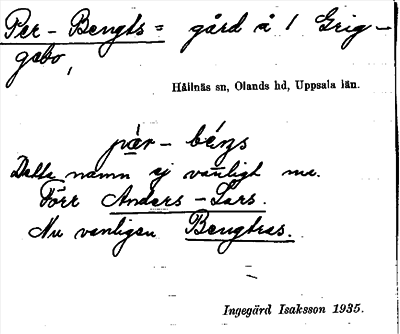 Per-Bengts = gård å 1 Grig-
gebo,
Hållnäs sn, Olands hd, Uppsala län.
pær - béŋs
Detta namn ej vanligt nu.
Förr Anders-Lars.
Nu vanligen Bengtses.
Ingegärd Isaksson 1935.